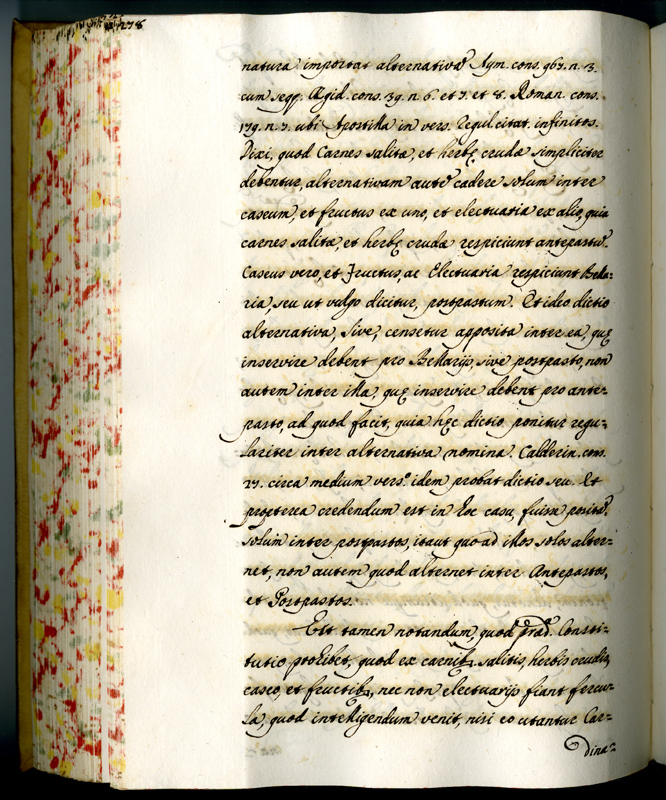 278
natura importat alternativã Aym. cons. 967. n. 3.
cum seqq. Ægid. cons. 39. n. 6. et 7. et 8. Roman. cons.
179. n. 7. ubi Apostilla in vers. regul. citat. infinitos.
Dixi, quod Carnes salitæ, et herbę crudæ simpliciter
debentur, alternativam autẽ cadere solum inter
caseum, et fructus ex uno, et electuaria ex alio, quia
carnes salitæ, et herbę crudæ respiciunt antepastũ.
Caseus vero, et Fructus, ac Electuaria respiciunt Bella=
ria, seu ut vulgo dicitur, postpastum. Et ideo dictio
alternativa, sive, censetur apposita inter ea, quę
inservire debent pro Bellarijs, sivè postpasto, non
autem inter illa, quę inservire debent pro ante=
pasto, ad quod facit, quia hęc dictio ponitur regu=
lariter inter alternativa nomina. Calderin. cons.
27. circa medium vers.º idem probat dictio seu. Et
proeterea credendum est in hoc casu, fuisse positã,
solum inter postpastos, itaut quo ad illos solos alter=
net, non autem quod alternet inter Antepastos,
et Postpastos.
Est tamen notandum, quod præd. Consti=
tutio prohibet, quod ex carnib. salitis, herbis crudis,
caseo, et fructib., nec non electuarijs fiant fercu=
la, quod intelligendum venit, nisi eo utantur Car=
dina=